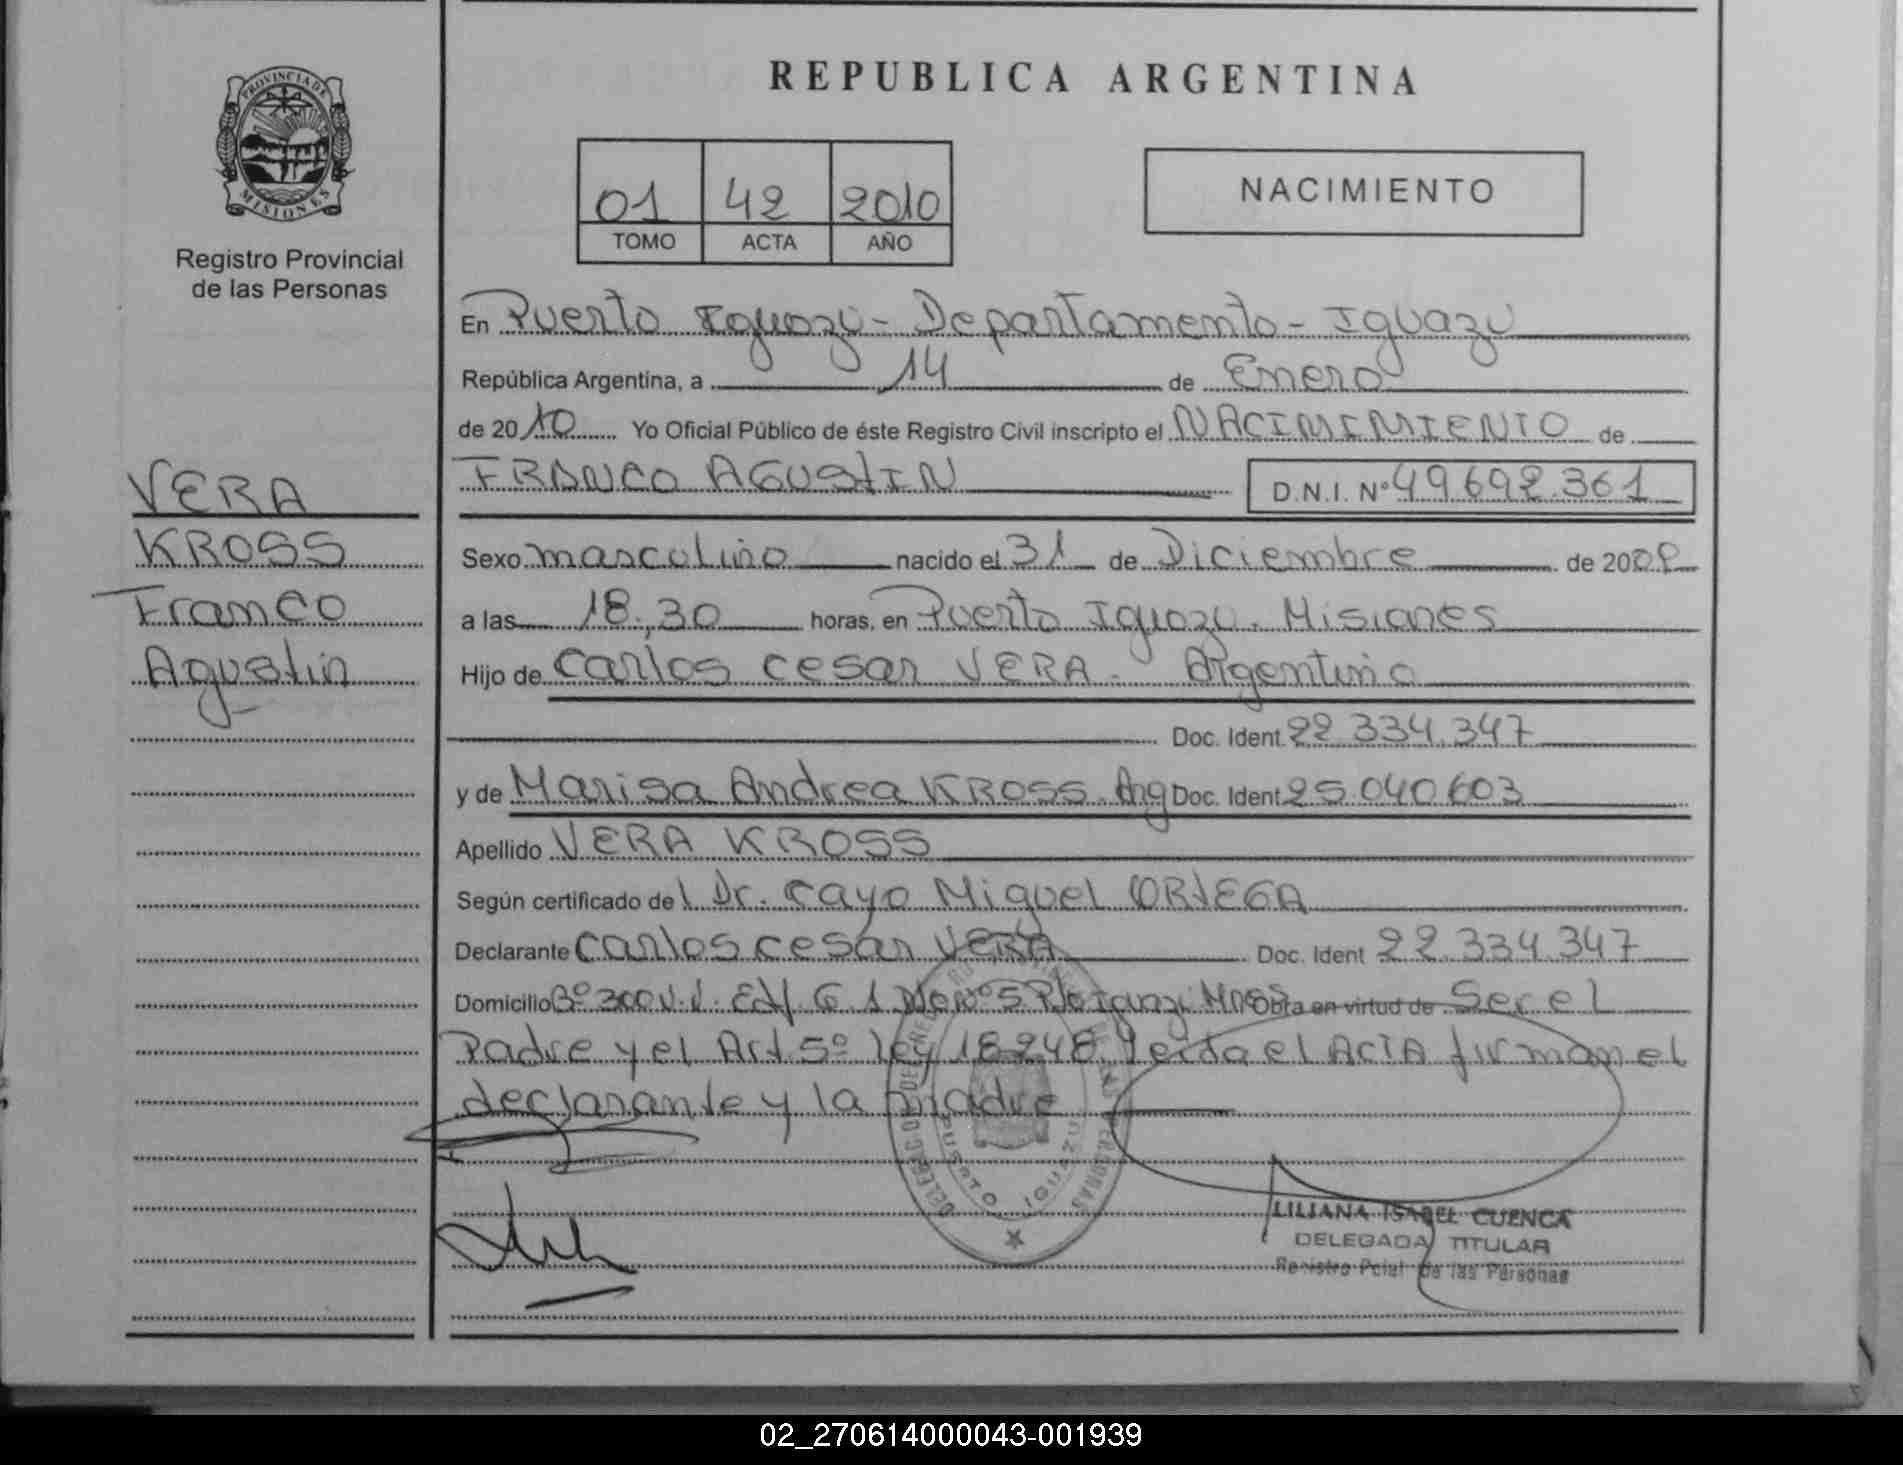 PROVINCIA DE
MISIONES
Registro Provincial
de las Personas
VERA
KROSS
Franco
Agustin
REPUBLICA ARGENTINA
01 42 2010
TOMO ACTA AÑO
NACIMIENTO
En Puerto Iguazu - Departamento - Iguazu
República Argentina, a 14 de Enero
de 2010 Yo Oficial Público de éste Registro Civil inscripto el NACIMIMIENTO de
FRANCO AGUSTIN D.N.I. Nº 49692.361
Sexo masculino nacido el 31 de Diciembre de 2009
a las 18,30 horas, en Puerto Iguazu. Misiones
Hijo de Carlos Cesar VERA - Argentino
Doc. Ident. 22.334.347
y de Marisa Andrea KROSS. Arg Doc. Ident. 25.040.603
Apellido VERA KROSS
Según certificado del Dr. Cayo Miguel ORTEGA
Declarante Carlos Cesar VERA Doc. Ident 22.334.347
Domicilio Bº 300 V.V. Edf. 6.1 Nº 5 Pto Iguazu Mnes Obra en virtud de Ser el
Padre y el Art 5º ley 18248. Leida el ACTA firman el
declarante y la madre
PUERTO IGUAZU
LILIANA ISABEL CUENCA
DELEGADA TITULAR
Registro Pcial de las Personas
02_270614000043-001939